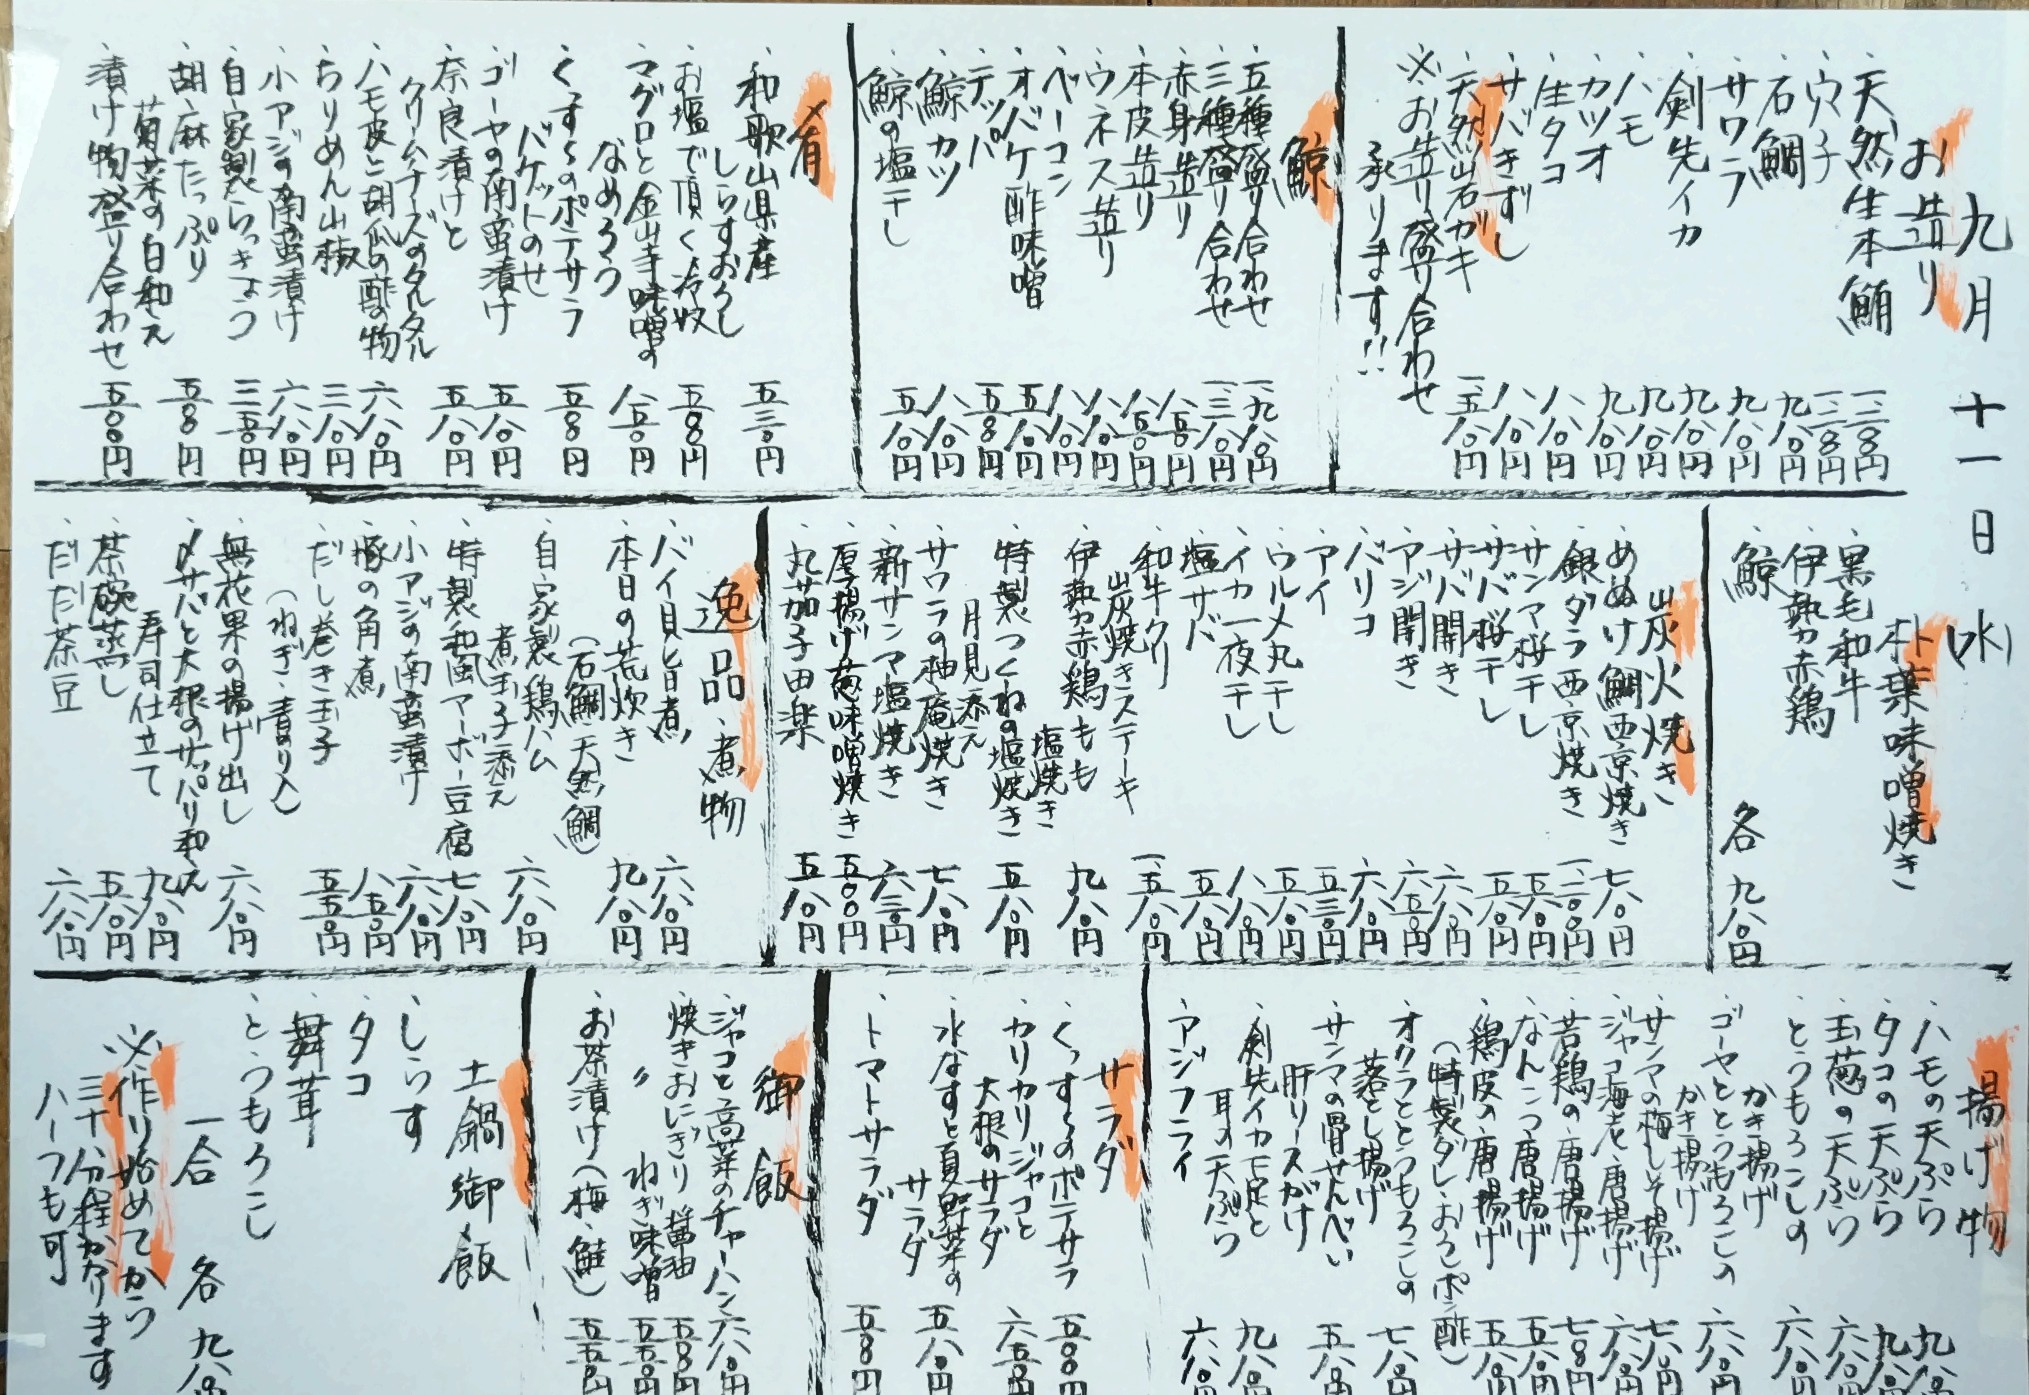 九月十一日(水)
お造り
、天然生本鮪 一、二八〇円
、穴子 一、二八〇円
、石鯛 九八〇円
、サワラ 九八〇円
、剣先イカ 九八〇円
、ハモ 九八〇円
、カツオ 九八〇円
、生タコ 八八〇円
、サバきずし 八八〇円
、天然岩ガキ 一、五八〇円
※お造り盛り合わせ
承ります!!
鯨
、五種盛り合わせ 一、九八〇円
、三種盛り合わせ 一、三八〇円
、赤身造り 八五〇円
、本皮造り 八五〇円
、ウネス造り 八八〇円
、ベーコン 八八〇円
、オバケ酢味噌 五八〇円
、テッパ 五五〇円
、鯨カツ 八八〇円
、鯨の塩干し 五八〇円
〆肴
、和歌山県産
しらすおろし 五三〇円
、お塩で頂く冷奴 五五〇円
、マグロと金山寺味噌の
なめろう 八五〇円
、くずしのポテサラ
バケットのせ 五五〇円
、ゴーヤの南蛮漬け 五八〇円
、奈良漬けと
クリームチーズのタルタル 五八〇円
、ハモ皮と胡瓜の酢の物 六八〇円
、ちりめん山椒 三八〇円
、小アジの南蛮漬け 六八〇円
、自家製らっきょう 三五〇円
、胡麻たっぷり
菊菜の白和え 五五〇円
、漬け物盛り合わせ 五五〇円
朴葉味噌焼き
、黒毛和牛
、伊勢赤鶏
、鯨
各九八〇円
炭火焼き
、めぬけ鯛西京焼き 七八〇円
、銀ダラ西京焼き 一、二〇〇円
、サンマ桜干し 五五〇円
、サバ桜干し 五八〇円
、サバ開き 六八〇円
、アジ開き 六五〇円
、バリコ 六八〇円
、アイ 五三〇円
、ウルメ丸干し 五八〇円
、イカ一夜干し 八八〇円
、塩サバ 五八〇円
、和牛クリ
炭焼きステーキ 一、五八〇円
、伊勢赤鶏もも
塩焼き 九八〇円
、特製つくねの塩焼き
月見添え 五八〇円
、サワラの柚庵焼き 七八〇円
、新サンマ塩焼き 六三〇円
、厚揚げ葱味噌焼き 五〇〇円
、丸茄子田楽 五八〇円
逸品、煮物
、バイ貝旨煮 六八〇円
、本日の荒炊き
(石鯛、天然鯛) 九八〇円
、自家製鶏ハム
煮玉子添え 六八〇円
、特製和風マーボー豆腐 七八〇円
、小アジの南蛮漬け 六八〇円
、豚の角煮 八五〇円
、だし巻き玉子
(ねぎ、青のり入) 五五〇円
、無花果の揚げ出し 六八〇円
、〆サバと大根のサッパリ和え
寿司仕立て 九八〇円
、茶碗蒸し 五八〇円
、だだ茶豆 六八〇円
揚げ物
、ハモの天ぷら 九八〇
、タコの天ぷら 九八〇
、玉葱の天ぷら 六八〇円
、とうもろこしの
かき揚げ 六八〇円
、ゴーヤととうもろこしの
かき揚げ 六八〇円
、サンマの梅しそ揚げ 七八〇円
、ジャコ海老唐揚げ 六八〇円
、若鶏の唐揚げ 七八〇円
、なんこつ唐揚げ 五五〇円
、鶏皮の唐揚げ
(特製ダレ、おろしポン酢) 五八〇円
、オクラととうもろこしの
落とし揚げ 七八〇円
、サンマの骨せんべい
肝リースがけ 五八〇円
、剣先イカ足と
耳の天ぷら 九八〇円
、アジフライ 六八〇円
サラダ
、くずしのポテサラ 五〇〇円
、カリカリジャコと
大根のサラダ 六五〇円
、水なすと夏野菜の
サラダ 五八〇円
、トマトサラダ 五五〇円
御飯
、ジャコと高菜のチャーハン 六八〇円
、焼きおにぎり 醤油 五五〇円
、〃 ねぎ味噌 五五〇円
、お茶漬け(梅、鮭) 五五〇円
土鍋御飯
、しらす
、タコ
、舞茸
、とうもろこし
一合 各九八〇
※作り始めてから
三十分程かかります
ハーフも可